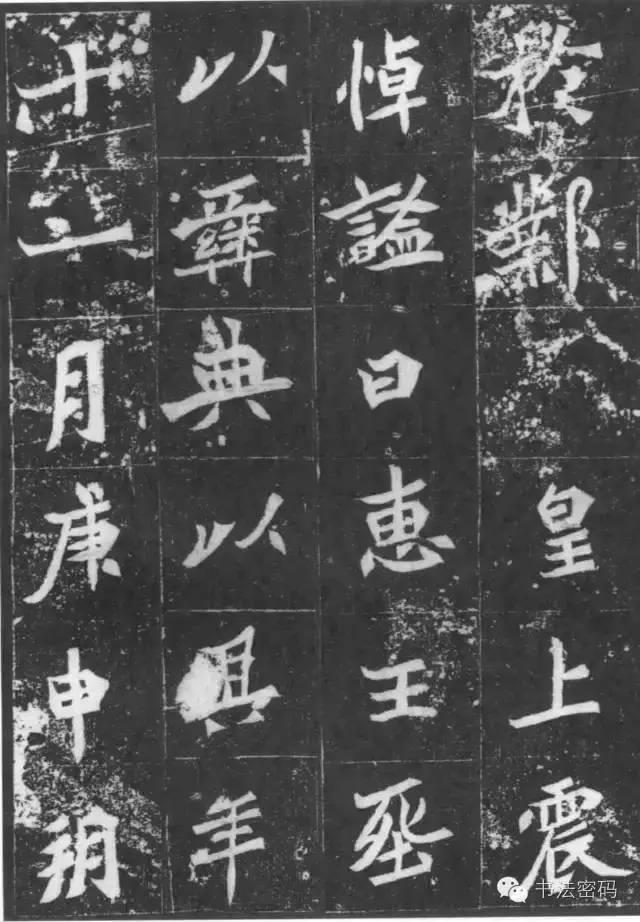 於鄴皇上震
悼諡曰惠王葬
以彝典以其年
十一月庚申朔
书法密码